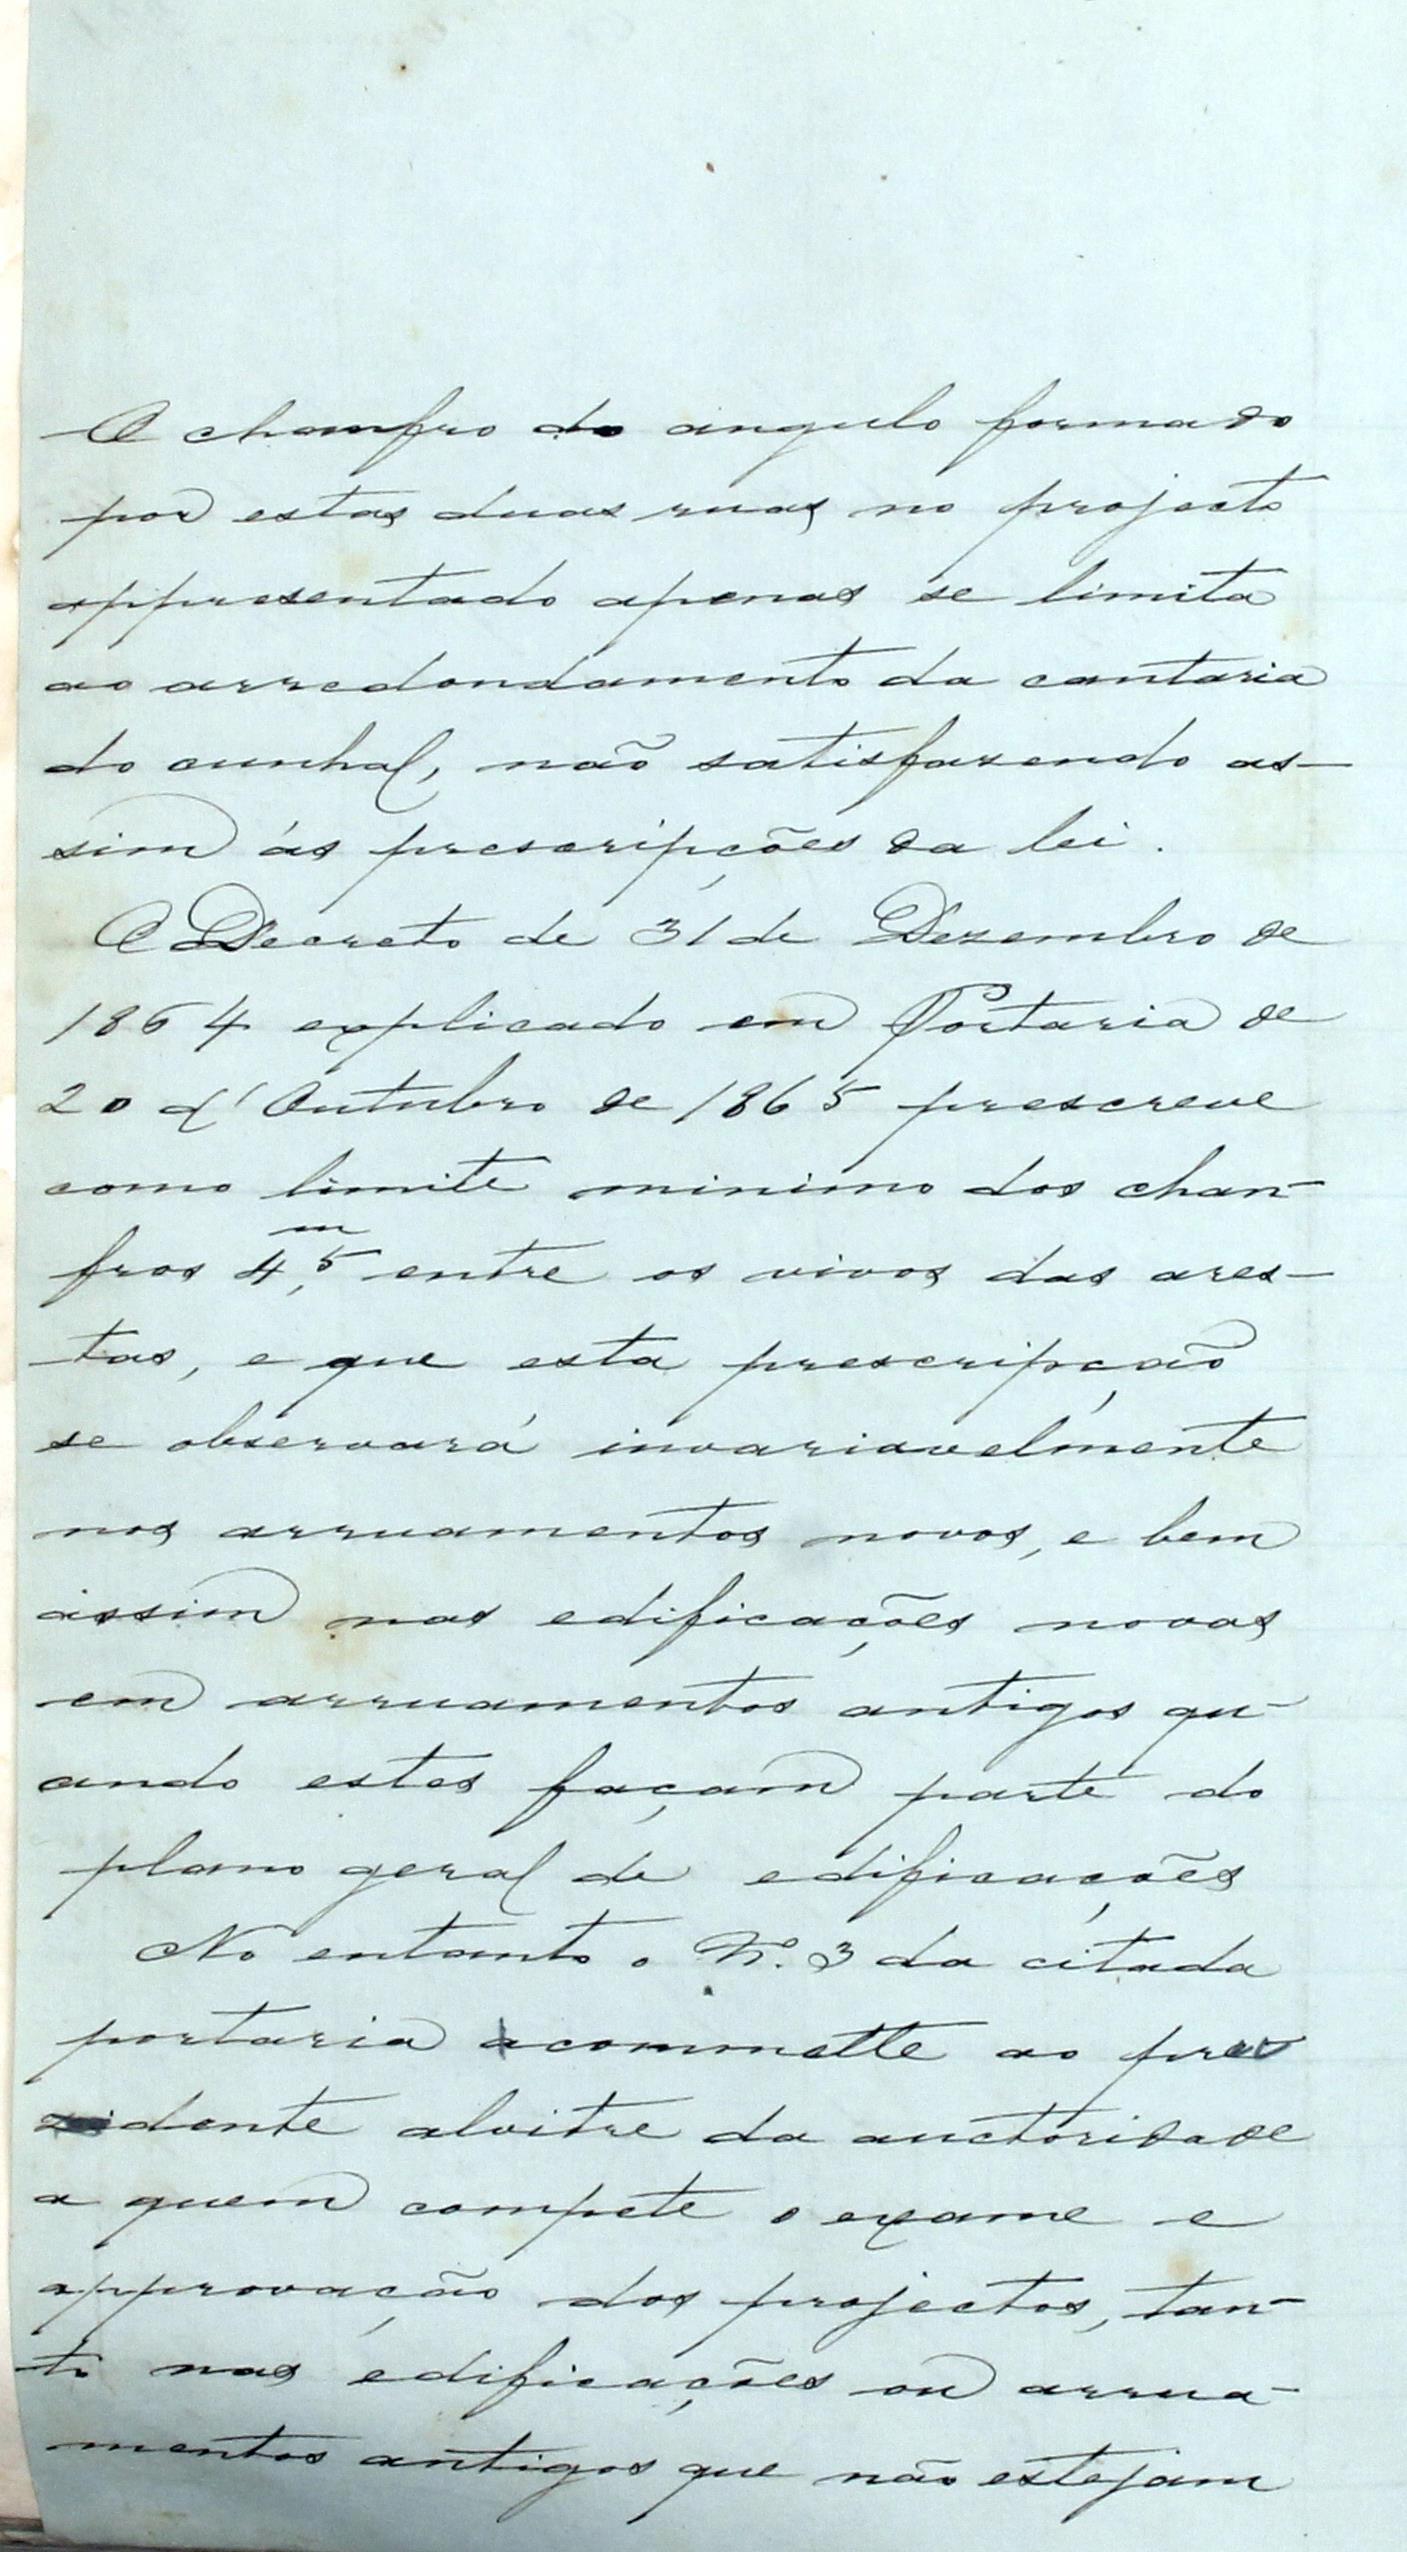 O chamfro do angulo formado
por estas duas ruas, no projecto
appresentado apenas se limita
ao arredondamento da cantaria
do cunhal, não satisfazendo as-
sim ás prescripções da lei.
O Decreto de 31 de Dezembro de
1864 explicado em Portaria de
20 d'Outubro de 1865 prescreve
como limite minimo dos chan-
fros 4,m5 entre os vivos das ares-
tas, e que esta prescripção
se observará invariavelmente
nos arruamentos novos, e bem
assim nas edificações novas
em arruamentos antigos qu-
ando estes façam parte do
plano geral de edificações
No entanto o Nº. 3 da citada
portaria acommette ao pru
dente alvitre da auctoridade
a quem compete o exame e
approvação dos projectos, tan-
to nas edificações ou arrua-
mentos antigos que não estejam